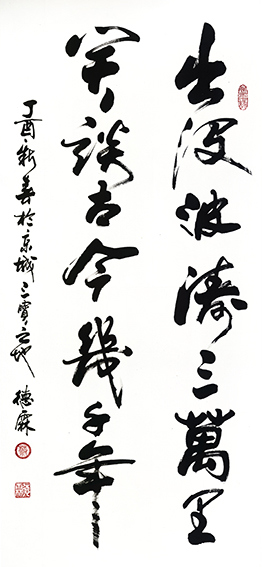 出没波濤三萬里
笑談古今幾千年
丁酉新春於京城三寶之地 德霖